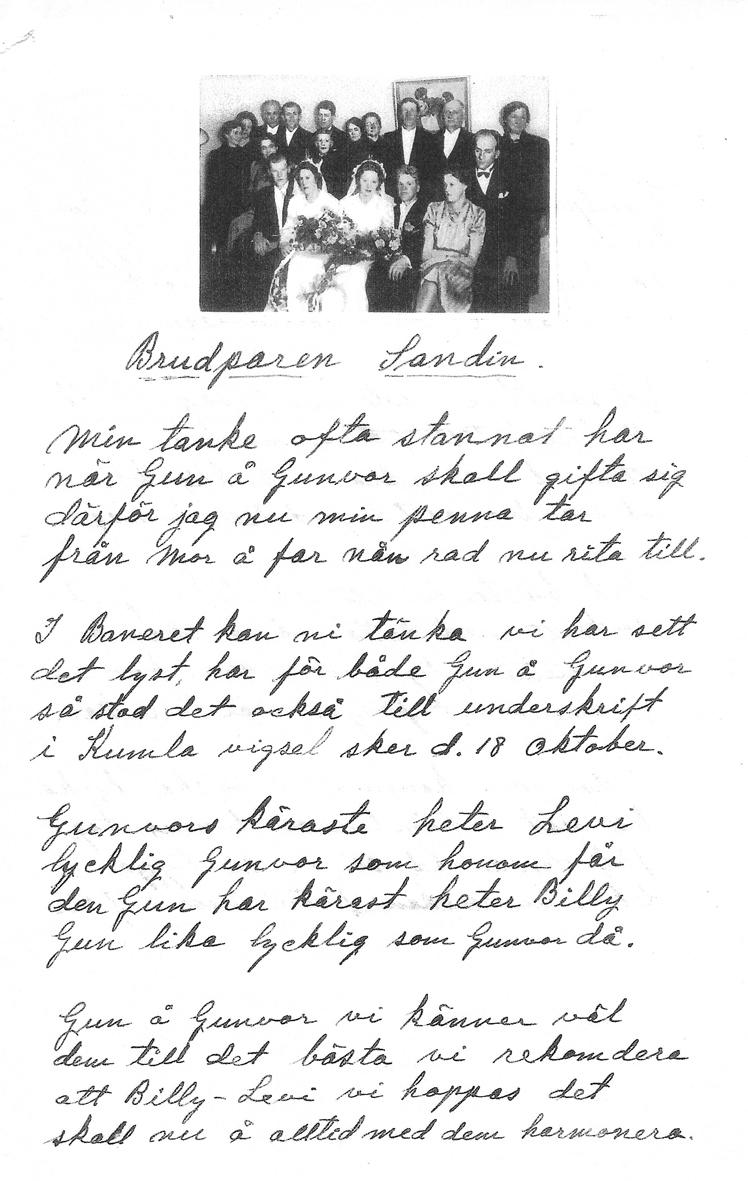 Brudparen Sandin.
Min tanke ofta stannat har
när Gun å Gunvor skall gifta sig
därför jag nu min penna tar
från Mor å far nån rad nu rita till.
I Baneret kan ni tänka vi har sett
det lyst, har för både Gun å Gunvor
så stod det också till underskrift
i Kumla vigsel sker d. 18 Oktober.
Gunvors käraste heter Levi
lycklig Gunvor som honom får
den Gun har kärast heter Billy
Gun lika lycklig som Gunvor då.
Gun å Gunvor vi känner väl
dem till det bästa vi rekomdera
att Billy-Levi vi hoppas det
skall nu å alltid med dem harmonera.